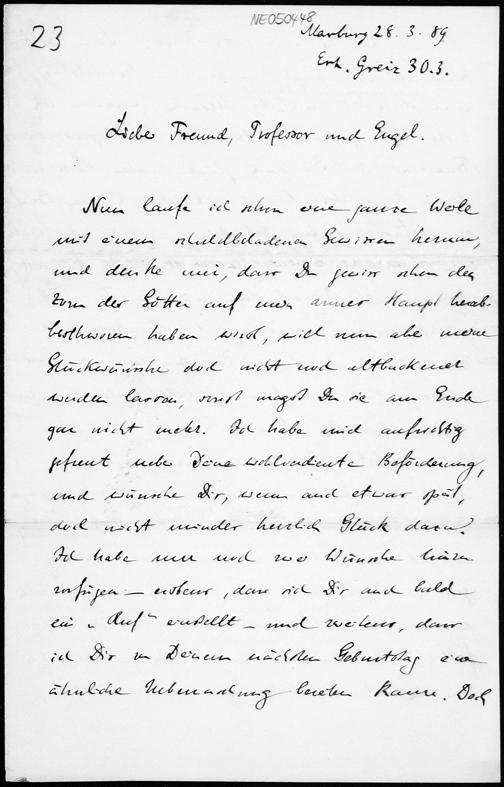 NE050448
23
Marburg 28. 3. 89
Erh. Greiz 30.3.
Lieber Freund, Professor und Engel.
Nun laufe ich schon eine ganze Weile
mit einem schuldbeladenen Gewissen herum,
und denke mir, dass Du gewiss schon den
Zorn der Götter auf mein armes Haupt herab-
beschworen haben wirst, will nun aber meine
Glückwünsche doch nicht noch altbackener
werden lassen, sonst magst Du sie am Ende
gar nicht mehr. Ich habe mich aufrichtig
gefreut ueber Deine wohlverdiente Beförderung,
und wünsche Dir, wenn auch etwas spät,
doch nicht minder herzlich Glück dazu.
Ich habe nun noch zwei Wünsche hinzu
zufügen – erstens, dass sich Dir auch bald
ein „Ruf“ einstellt – und zweitens, dass
ich Dir zu Deinem nächsten Geburtstag eine
ähnliche Ueberraschung bereiten kann. Doch